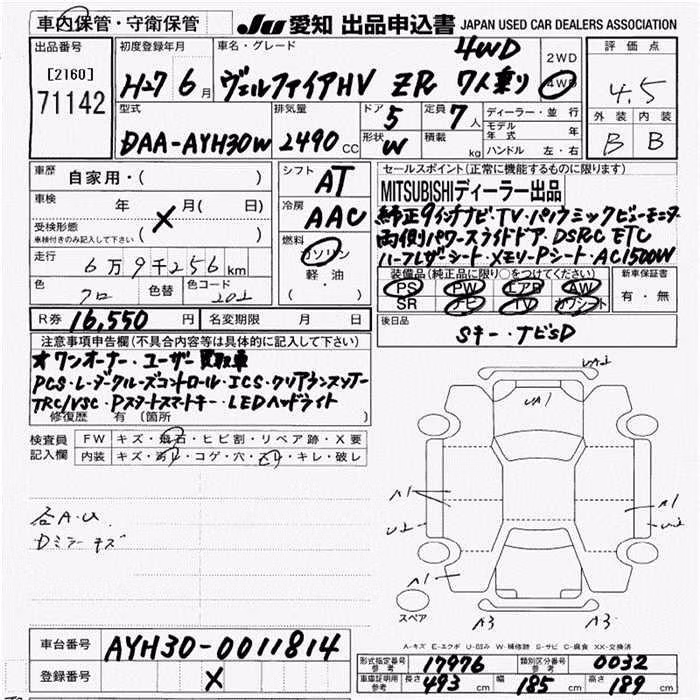 車内保管・守衛保管
JU 愛知 出品申込書 JAPAN USED CAR DEALERS ASSOCIATION
出品番号
[2160]
71142
初度登録年月
H27 6月
車名・グレード
4WD
ヴェルファイアHV ZR 7人乗り
2WD
4WD
評価点
4.5
外装 内装
B B
型式
DAA-AYH30W
排気量
2490 cc
ドア 5
形状 W
定員 7人
積載 kg
ディーラー・並行
モデル年式 年
ハンドル 左・右
車歴
自家用・( )
車検 年 X 月( 日)
受検形態
車検付きのみ記入して下さい ( )
走行
6万9千256km
色 クロ
色替
色コード 202
シフト AT
冷房 AAC
燃料
ガソリン
軽・油
( )
セールスポイント(正常に機能するものに限ります)
MITSUBISHIディーラー出品
純正9インチナビ・TV・パノラミックビューモニター
両側パワースライドドア・DSRC ETC
ハーフレザーシート・メモリーPシート・AC1500W
装備品(純正品に限り○をつけてください)
PS PW エアB AW
SR ナビ TV カワシート
新車保証書
有・無
後日品
Sキー・ナビSD
R券 16,550円
名変期限 月 日
注意事項申告欄(不具合内容等は具体的に記入して下さい)
ワンオーナー・ユーザー買取車
PCS・レーダークルーズコントロール・ICS・クリアランスソナー
TRC/VSC・Pスタートスマートキー・LEDヘッドライト
修復歴 有(箇所 )
検査員記入欄
FW キズ・飛石・ヒビ割・リペア跡・X要
内装 キズ・汚れ・コゲ・穴・スレ・キレ・破レ
各A・U
Dミラーキズ
UA2
UA1
A1
U2
A1
A1
U2
A3
A3
スペア
A-キズ E-エクボ U-凹み W-補修跡 S-サビ C-腐食 XX-交換済
車台番号 AYH30-0011814
登録番号 X
型式指定番号 参考 17976
類別区分番号 参考 0032
車庫証明用 参考 長さ 493cm 幅 185cm 高さ 189cm